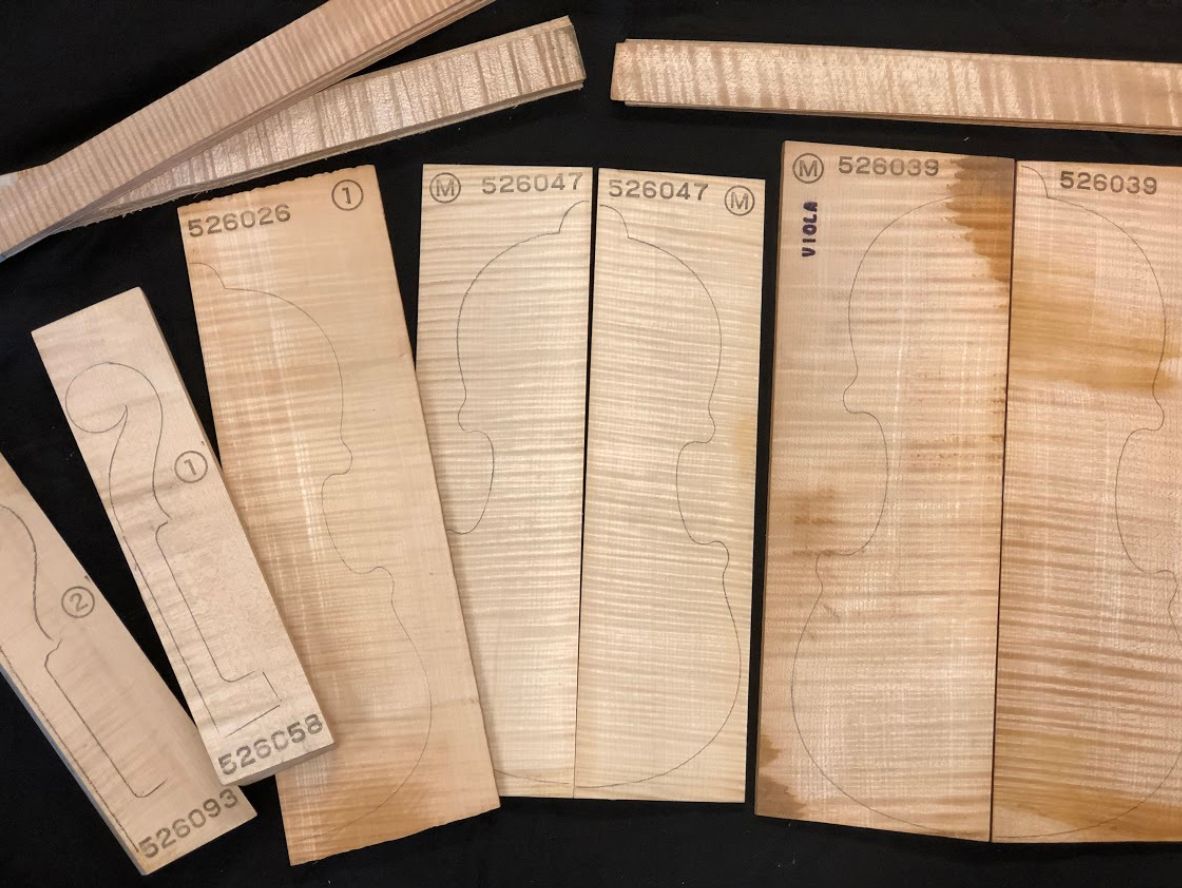 526026 ①
Ⓜ 526047
526047 Ⓜ
Ⓜ 526039
VIOLA
526039
①
526058
②
526093